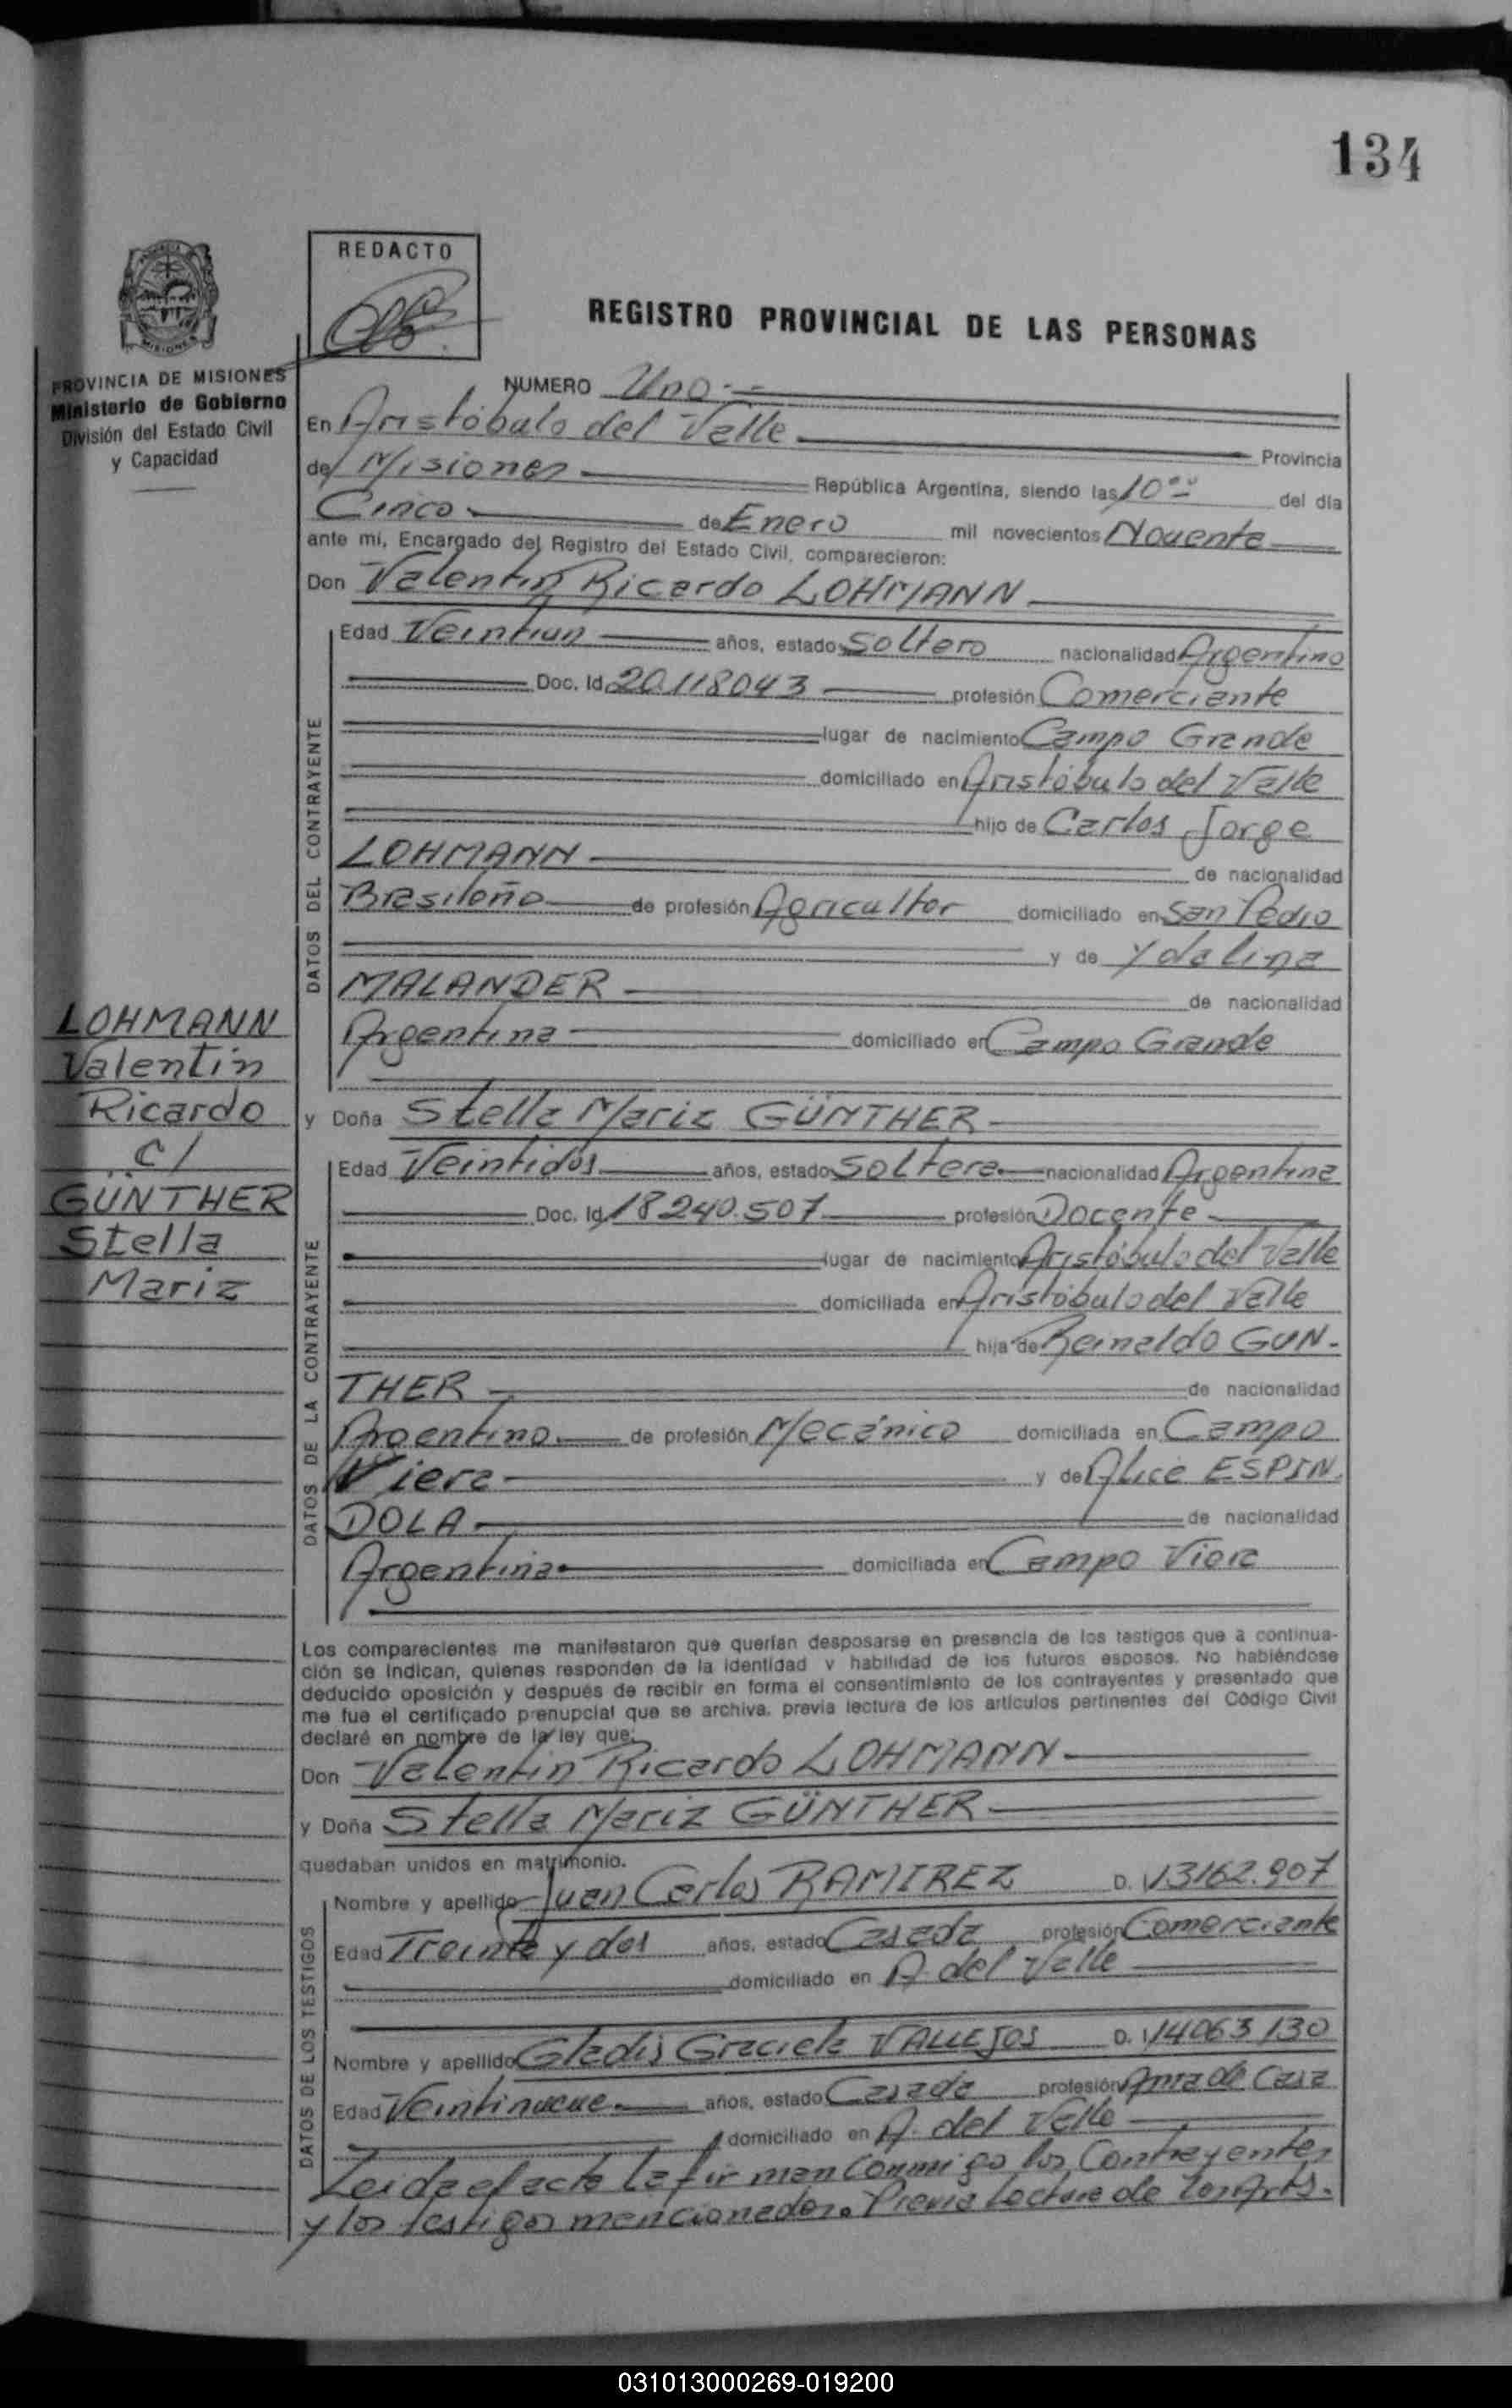 134
REDACTO
REGISTRO PROVINCIAL DE LAS PERSONAS
PROVINCIA DE MISIONES
Ministerio de Gobierno
División del Estado Civil
y Capacidad
NUMERO Uno.-
En Aristóbulo del Valle Provincia
de Misiones República Argentina, siendo las 10 00 del día
Cinco de Enero mil novecientos Noventa
ante mí, Encargado del Registro del Estado Civil, comparecieron:
Don Valentín Ricardo LOHMANN
DATOS DEL CONTRAYENTE
Edad Veintiun años, estado Soltero nacionalidad Argentino
Doc. Id. 20.118043 profesión Comerciante
lugar de nacimiento Campo Grande
domiciliado en Aristóbulo del Valle
hijo de Carlos Jorge
LOHMANN de nacionalidad
Brasileño de profesión Agricultor domiciliado en San Pedro
y de Ydalina
MALANDER de nacionalidad
Argentina domiciliado en Campo Grande
LOHMANN
Valentín
Ricardo
c/
GÜNTHER
Stella
Mariz
y Doña Stella Mariz GÜNTHER
DATOS DE LA CONTRAYENTE
Edad Veintidos años, estado Soltera nacionalidad Argentina
Doc. Id. 18240.507 profesión Docente
lugar de nacimiento Aristóbulo del Valle
domiciliada en Aristóbulo del Valle
hija de Reinaldo GUN-
THER de nacionalidad
Argentino de profesión Mecánico domiciliada en Campo
Viera y de Alice ESPIN
DOLA de nacionalidad
Argentina domiciliada en Campo Viera
Los comparecientes me manifestaron que querían desposarse en presencia de los testigos que a continua-
ción se indican, quienes responden de la identidad y habilidad de los futuros esposos. No habiéndose
deducido oposición y después de recibir en forma el consentimiento de los contrayentes y presentado que
me fue el certificado prenupcial que se archiva, previa lectura de los artículos pertinentes del Código Civil
declaré en nombre de la ley que:
Don Valentín Ricardo LOHMANN
y Doña Stella Mariz GÜNTHER
quedaban unidos en matrimonio.
DATOS DE LOS TESTIGOS
Nombre y apellido Juan Carlos RAMIREZ D. I. 13162.907
Edad Treinta y dos años, estado Casada profesión Comerciante
domiciliado en A. del Valle
Nombre y apellido Gladis Graciela VALLEJOS D. I. 14063130
Edad Veintinueve años, estado Casada profesión Ama de Casa
domiciliado en A. del Valle
Leida el acta la firman conmigo los Contrayentes
y los testigos mencionados. Previa Lectura de los Arts.
031013000269-019200